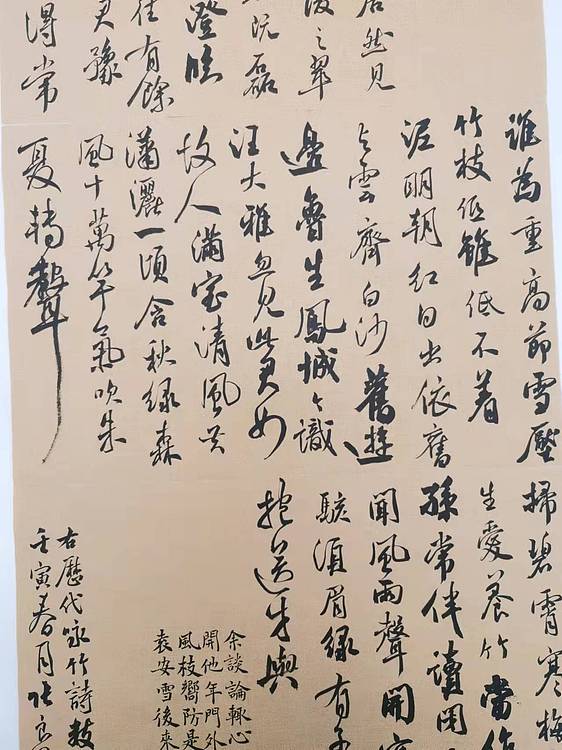 居然見
後之翠
阮磊
澄臨
往有餘
君豫
得常
誰為重高節雪壓
竹枝低雖低不着
泥明朝紅日出依舊
與雲齊白沙舊遊
邊魯生鳳城々識
汪大雅忽見此君如
故人滿室清風共
瀟灑一頃含秋綠森
風十萬竿氣吹朱
夏轉聲
掃碧霄寒梅
生愛養竹當作
孫常伴讀
聞風雨聲開
鬚眉綠有
抱送
余談論輒心
開他年門外
風枝嚮防是
袁安雪後来
右歷代咏竹詩数
壬寅春月